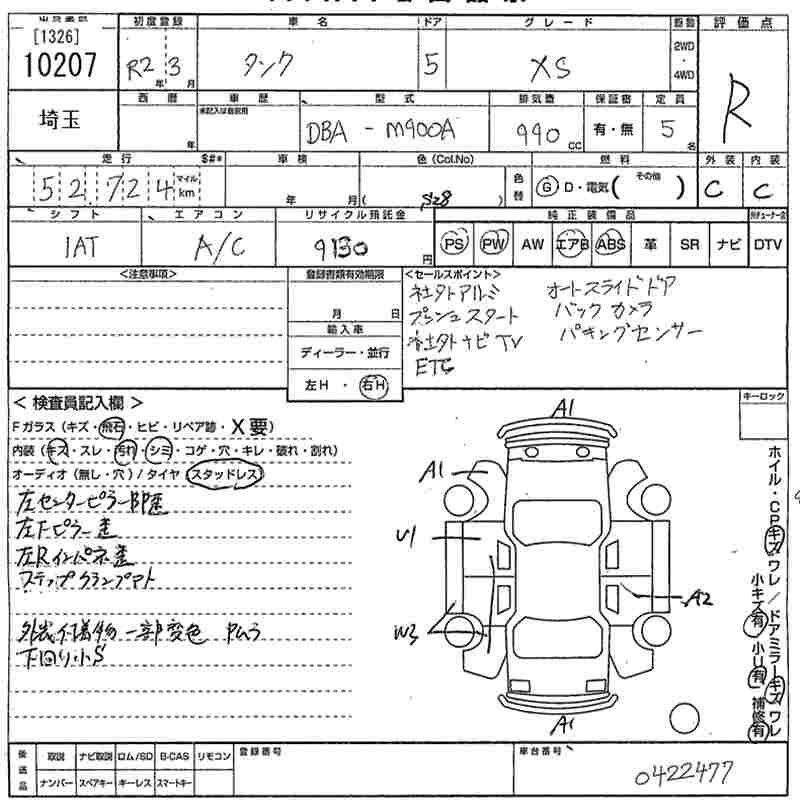 [1326]
10207
埼玉
初度登録
R2年 3月
車名
タンク
ドア
5
グレード
XS
駆動
2WD
・
4WD
評価点
R
西暦
年
車歴
未記入は自家用
型式
DBA - M900A
排気量
990 CC
保証書
有・無
定員
5名
走行
$#*
52,724
マイル
km
車検
年 月
色(Col.No)
( S28 )
色替
燃料
Ⓖ D・電気( その他 )
外装
C
内装
C
シフト
IAT
エアコン
A/C
リサイクル預託金
9130円
純正装備品
PS PW AW エアB ABS 革 SR ナビ DTV
<注意事項>
登録書類有効期限
月 日
輸入車
ディーラー・並行
左H・右H
<セールスポイント>
社外アルミ オートスライドドア
プッシュスタート バックカメラ
社外ナビTV パーキングセンサー
ETC
<検査員記入欄>
Fガラス(キズ・飛石・ヒビ・リペア跡・X要)
内装(キズ・スレ・汚れ・シミ・コゲ・穴・キレ・破れ・割れ)
オーディオ(無し・穴)/タイヤ(スタッドレス)
左センターピラー部歪
左Fピラー歪
左Rインパネ歪
ステップクランプアト
外装付着物 一部変色 POムラ
下回り小S
A1
A1
U1
W3
A2
A1
キーロック
ホイル・CPキズ・ワレ/ドアミラーキズ・ワレ
小キズ有 小U有 補修有
後送品
取説 ナビ取説 ロム/SD B-CAS リモコン
ナンバー スペアキー キーレス スマートキー
登録番号
車台番号
0422477